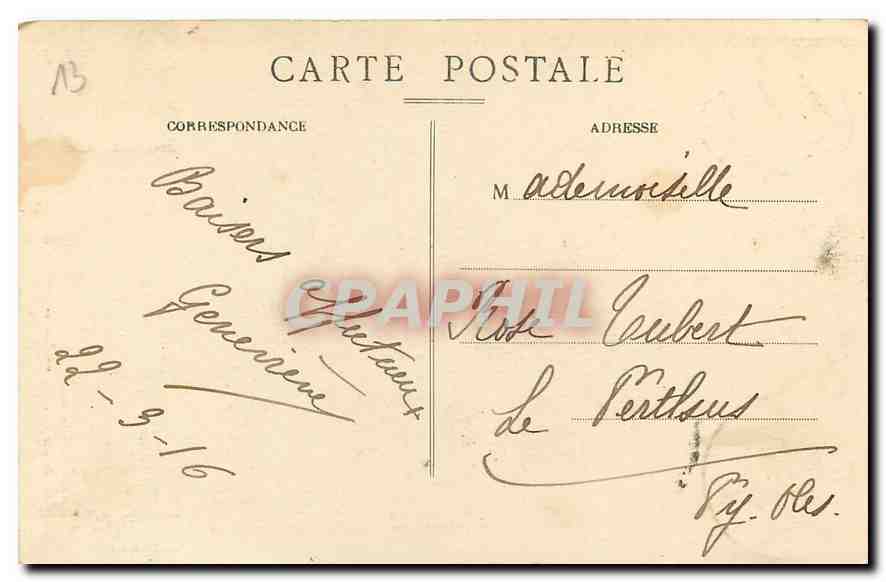 13
CARTE POSTALE
CORRESPONDANCE
ADRESSE
Baisers affectueux
Geneviève
22-9-16
Mademoiselle
Rose Tubert
Le Perthus
Py. Oles.
CPAPHIL